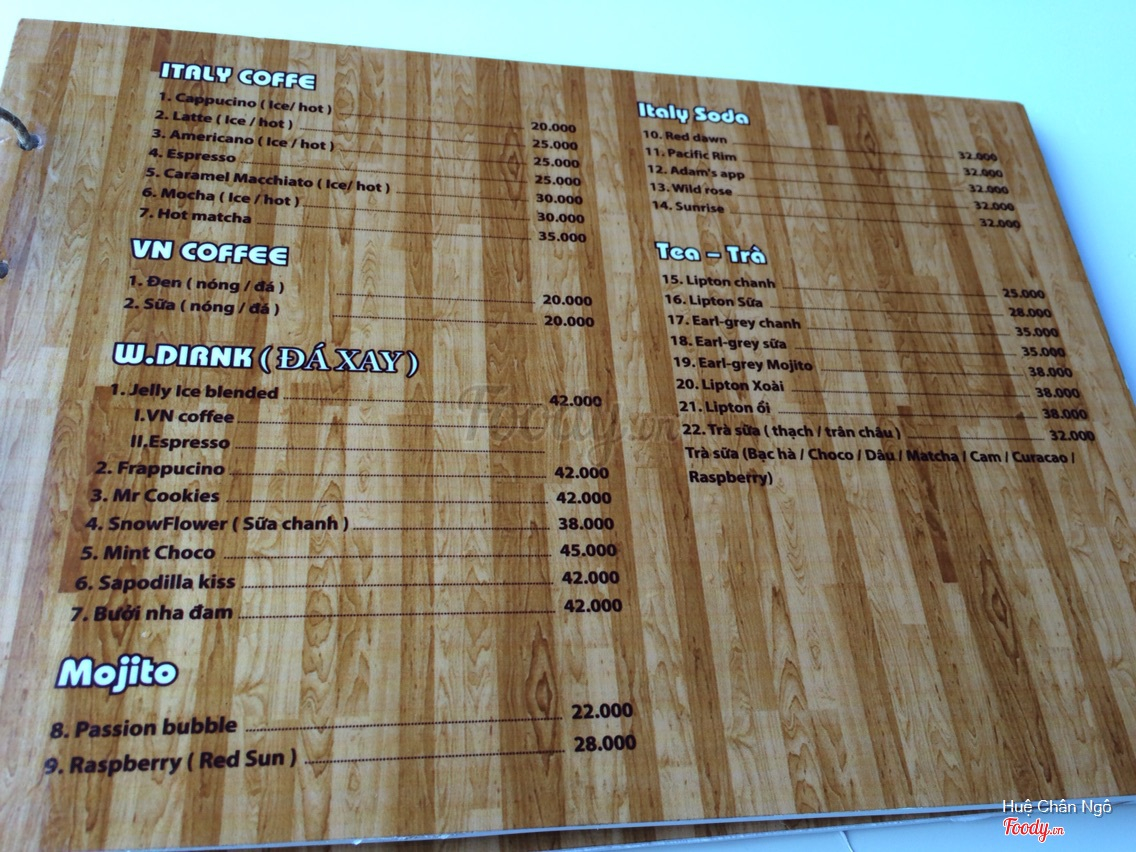 ITALY COFFE
1. Cappucino ( Ice/ hot ) 20.000
2. Latte ( Ice / hot ) 25.000
3. Americano ( Ice / hot ) 25.000
4. Espresso 25.000
5. Caramel Macchiato ( Ice/ hot ) 30.000
6. Mocha ( Ice / hot ) 30.000
7. Hot matcha 35.000
VN COFFEE
1. Đen ( nóng / đá ) 20.000
2. Sữa ( nóng / đá ) 20.000
W.DIRNK ( ĐÁ XAY )
1. Jelly Ice blended 42.000
I.VN coffee
II.Espresso
2. Frappucino 42.000
3. Mr Cookies 42.000
4. SnowFlower ( Sữa chanh ) 38.000
5. Mint Choco 45.000
6. Sapodilla kiss 42.000
7. Bưởi nha đam 42.000
Mojito
8. Passion bubble 22.000
9. Raspberry ( Red Sun ) 28.000
Italy Soda
10. Red dawn 32.000
11. Pacific Rim 32.000
12. Adam's app 32.000
13. Wild rose 32.000
14. Sunrise 32.000
Tea – Trà
15. Lipton chanh 25.000
16. Lipton Sữa 28.000
17. Earl-grey chanh 35.000
18. Earl-grey sữa 35.000
19. Earl-grey Mojito 38.000
20. Lipton Xoài 38.000
21. Lipton ổi 38.000
22. Trà sữa ( thạch / trân châu ) 32.000
Trà sữa (Bạc hà / Choco / Dâu / Matcha / Cam / Curacao /
Raspberry)
Foody.vn
Huệ Chân Ngô
Foody.vn